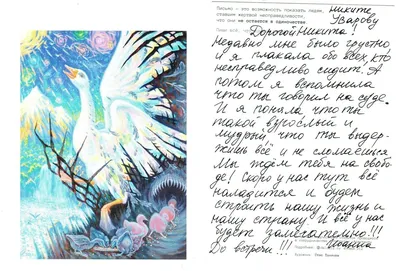 Письмо – это возможность показать людям,
ставшим жертвой несправедливости,
что они не остаются в одиночестве
Кому: Никите
Уварову
Дорогой Никита!
Недавно мне было грустно
и я плакала обо всех, кто
несправедливо сидит. А
потом я вспомнила
что ты говорил на суде.
И я поняла что ты
такой взрослый и
мудрый что ты выдер-
жишь всё и не сломаешься
Мы ждём тебя на свобо-
де! Скоро у нас тут всё
наладится и будем
строить нашу жизнь и
нашу страну И всё у нас
будет замечательно!!!
До встречи!!! Иоанна